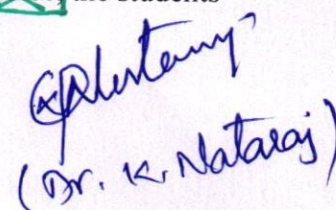 the students
(Dr. K. Nataraj)